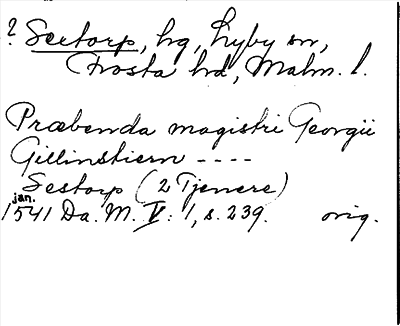 ? Seetorp, hg, Lyby sn,
Frosta hd, Malm. l.
Præbenda magistri Georgii
Gillinstiern ----
Sestorp (2 Tjenere)
jan.
1541 Da. M. V: 1, s. 239. orig.